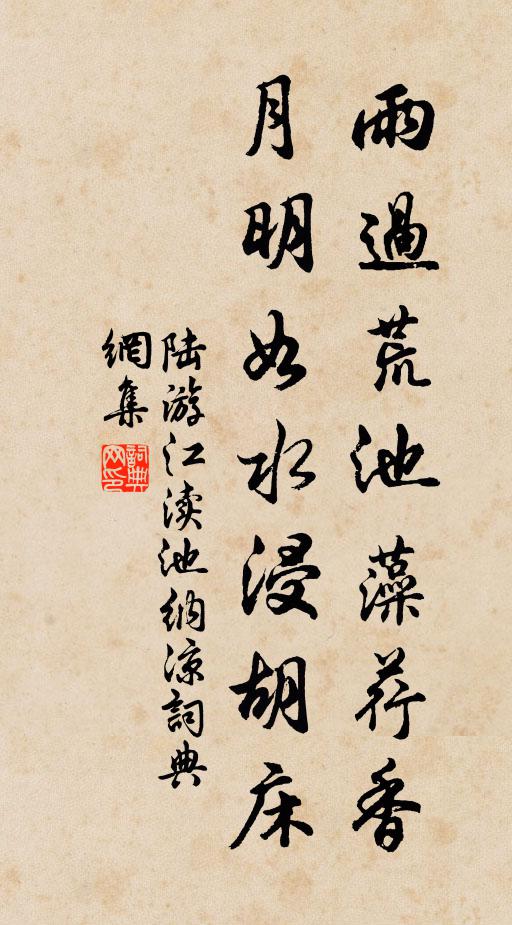 雨過荒池藻荇香
月明如水浸胡床
陆游江渎池纳凉詞典
網集
詞典網印